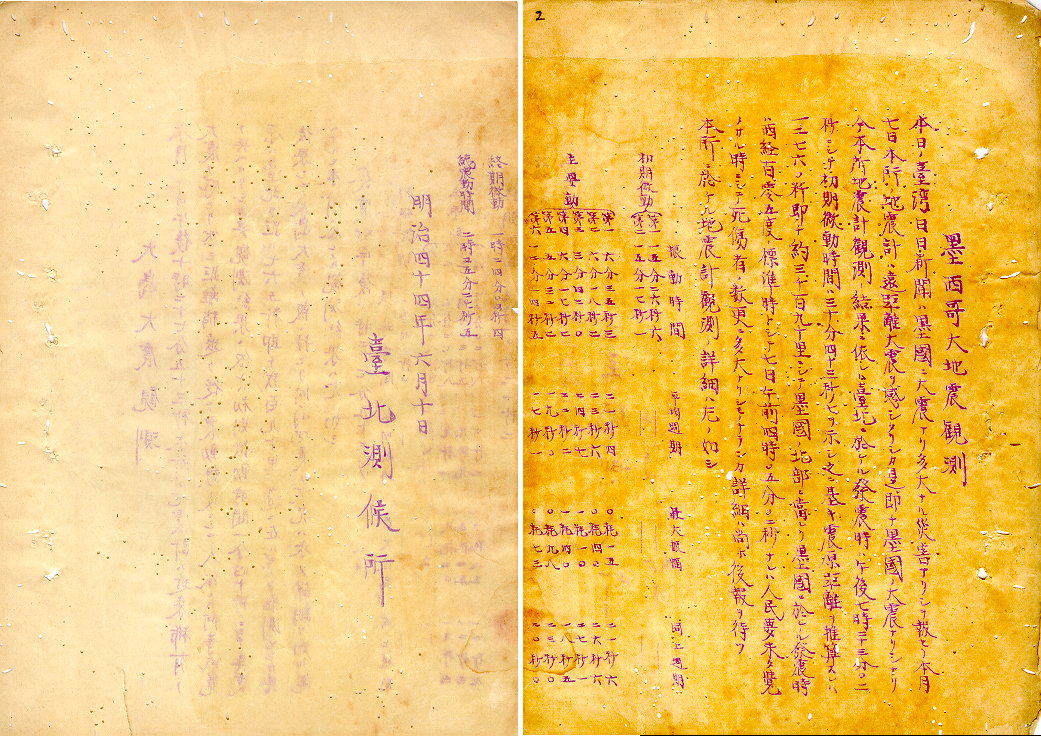 2
墨西哥大地震観測
本日ノ臺灣日日新聞ハ墨國ニ大震アリ多大ナル災害アリシヲ報セリ本月
七日本所ノ地震計ハ遠距離大震ヲ感シタリシカ是即チ墨國ノ大震ナリシナリ
今本所地震計観測ノ結果ニ依レハ臺北ニ於ケル発震時ハ午後七時三十三分〇二
秒ニシテ初期微動時間ハ三十分四十三秒七ヲ示シ之ニ基キ震源距離ヲ推算スレハ
一三七六〇粁即チ約三千百九十里ニシテ墨國ノ北部ニ當レリ墨國ニ於ケル発震時
ハ西経百零五度ノ標準時トシテ七日午前四時〇五分〇二秒ナレハ人民夢未タ覚
メサル時ニシテ死傷者ノ数更ニ多大ナリシモノナランカ詳細ハ尚ホ後報ヲ待ツ
本所ニ於ケル地震計観測ノ詳細ハ左ノ如シ
振動時間 平均週期 最大振幅 同上週期
初期微動
第一 一五分二六秒六
第二 一五分一七秒一
主要動
第一 六分三五秒三 二一秒四 〇粍一五 二一秒四
第二 六分一八秒二 二三秒六 〇粍四〇 二六秒六
第三 三分四二秒〇 二四秒七 一粍一〇 二七秒一
第四 六分一七秒二 二二秒二 一粍四〇 一八秒五
第五 五分三二秒二 一九秒〇 〇粍九八 二三秒〇
第六 一三分二四秒五 一七秒一 〇粍七三 二〇秒〇
終期微動 一時二四分〇三秒四
総震動時間 二時三五分二七秒五
明治四十四年六月十日
臺北測候所